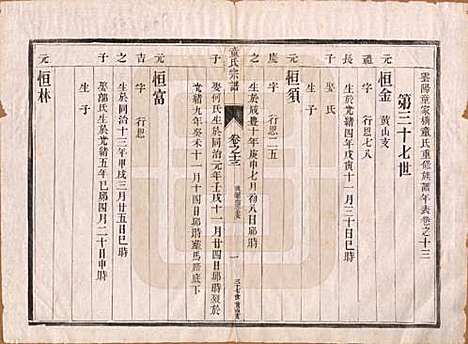 雲陽童家橫童氏重修族譜年表卷之十三
第三十七世
元 恒金 黃山支
禮 字 行恩
長 生於光緒四年戊寅十一月三十日卯時
子 娶氏
生子
元 恒須
慶 字 行恩二五
之 生於咸豐十年庚申七月初八日卯時
子 娶何氏生於同治元年壬戌十一月廿四日卯時歿於
光緒九年癸未十一月十四日卯時葬馬路底下
童氏宗譜
卷之十三
一
元 恒富
吉 字 行恩
之 生於同治十三年甲戌三月廿五日巳時
子 娶鄒氏生於光緒五年己卯四月二十日申時
生子
元 恒林